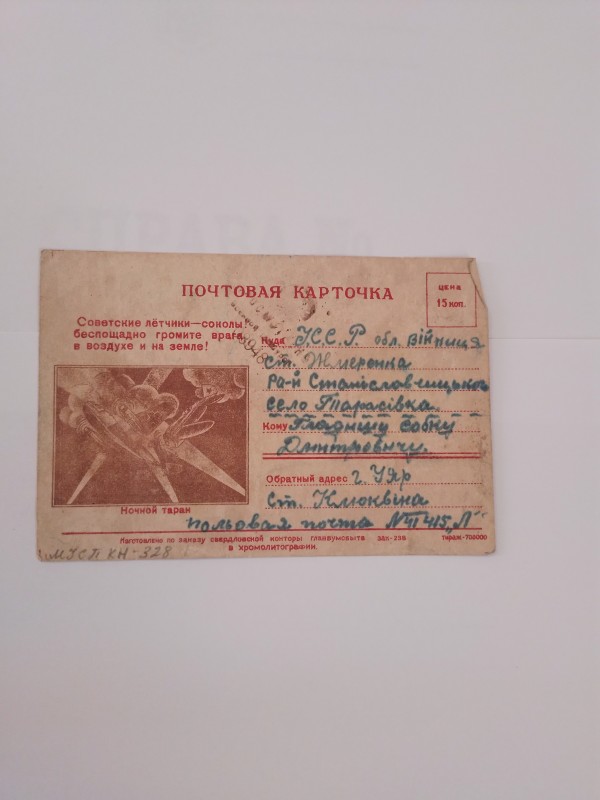 ПОЧТОВАЯ КАРТОЧКА
ЦЕНА
15 коп.
Советские лётчики—соколы,
беспощадно громите врага
в воздухе и на земле!
Ночной таран
Куда У.С.С.Р. обл. Війниця
ст. Жмеренка
ра-й Станіславчицького
село Тарасівка
Кому
Дмитровичу.
Обратный адрес г. Уяр
Ст. Клюквіна
польовая почта № 415 „Л"
Изготовлено по заказу свердловской конторы главвумсбыта Зак-239 тираж-700000
в хромолитографии.
МУСП КН-328